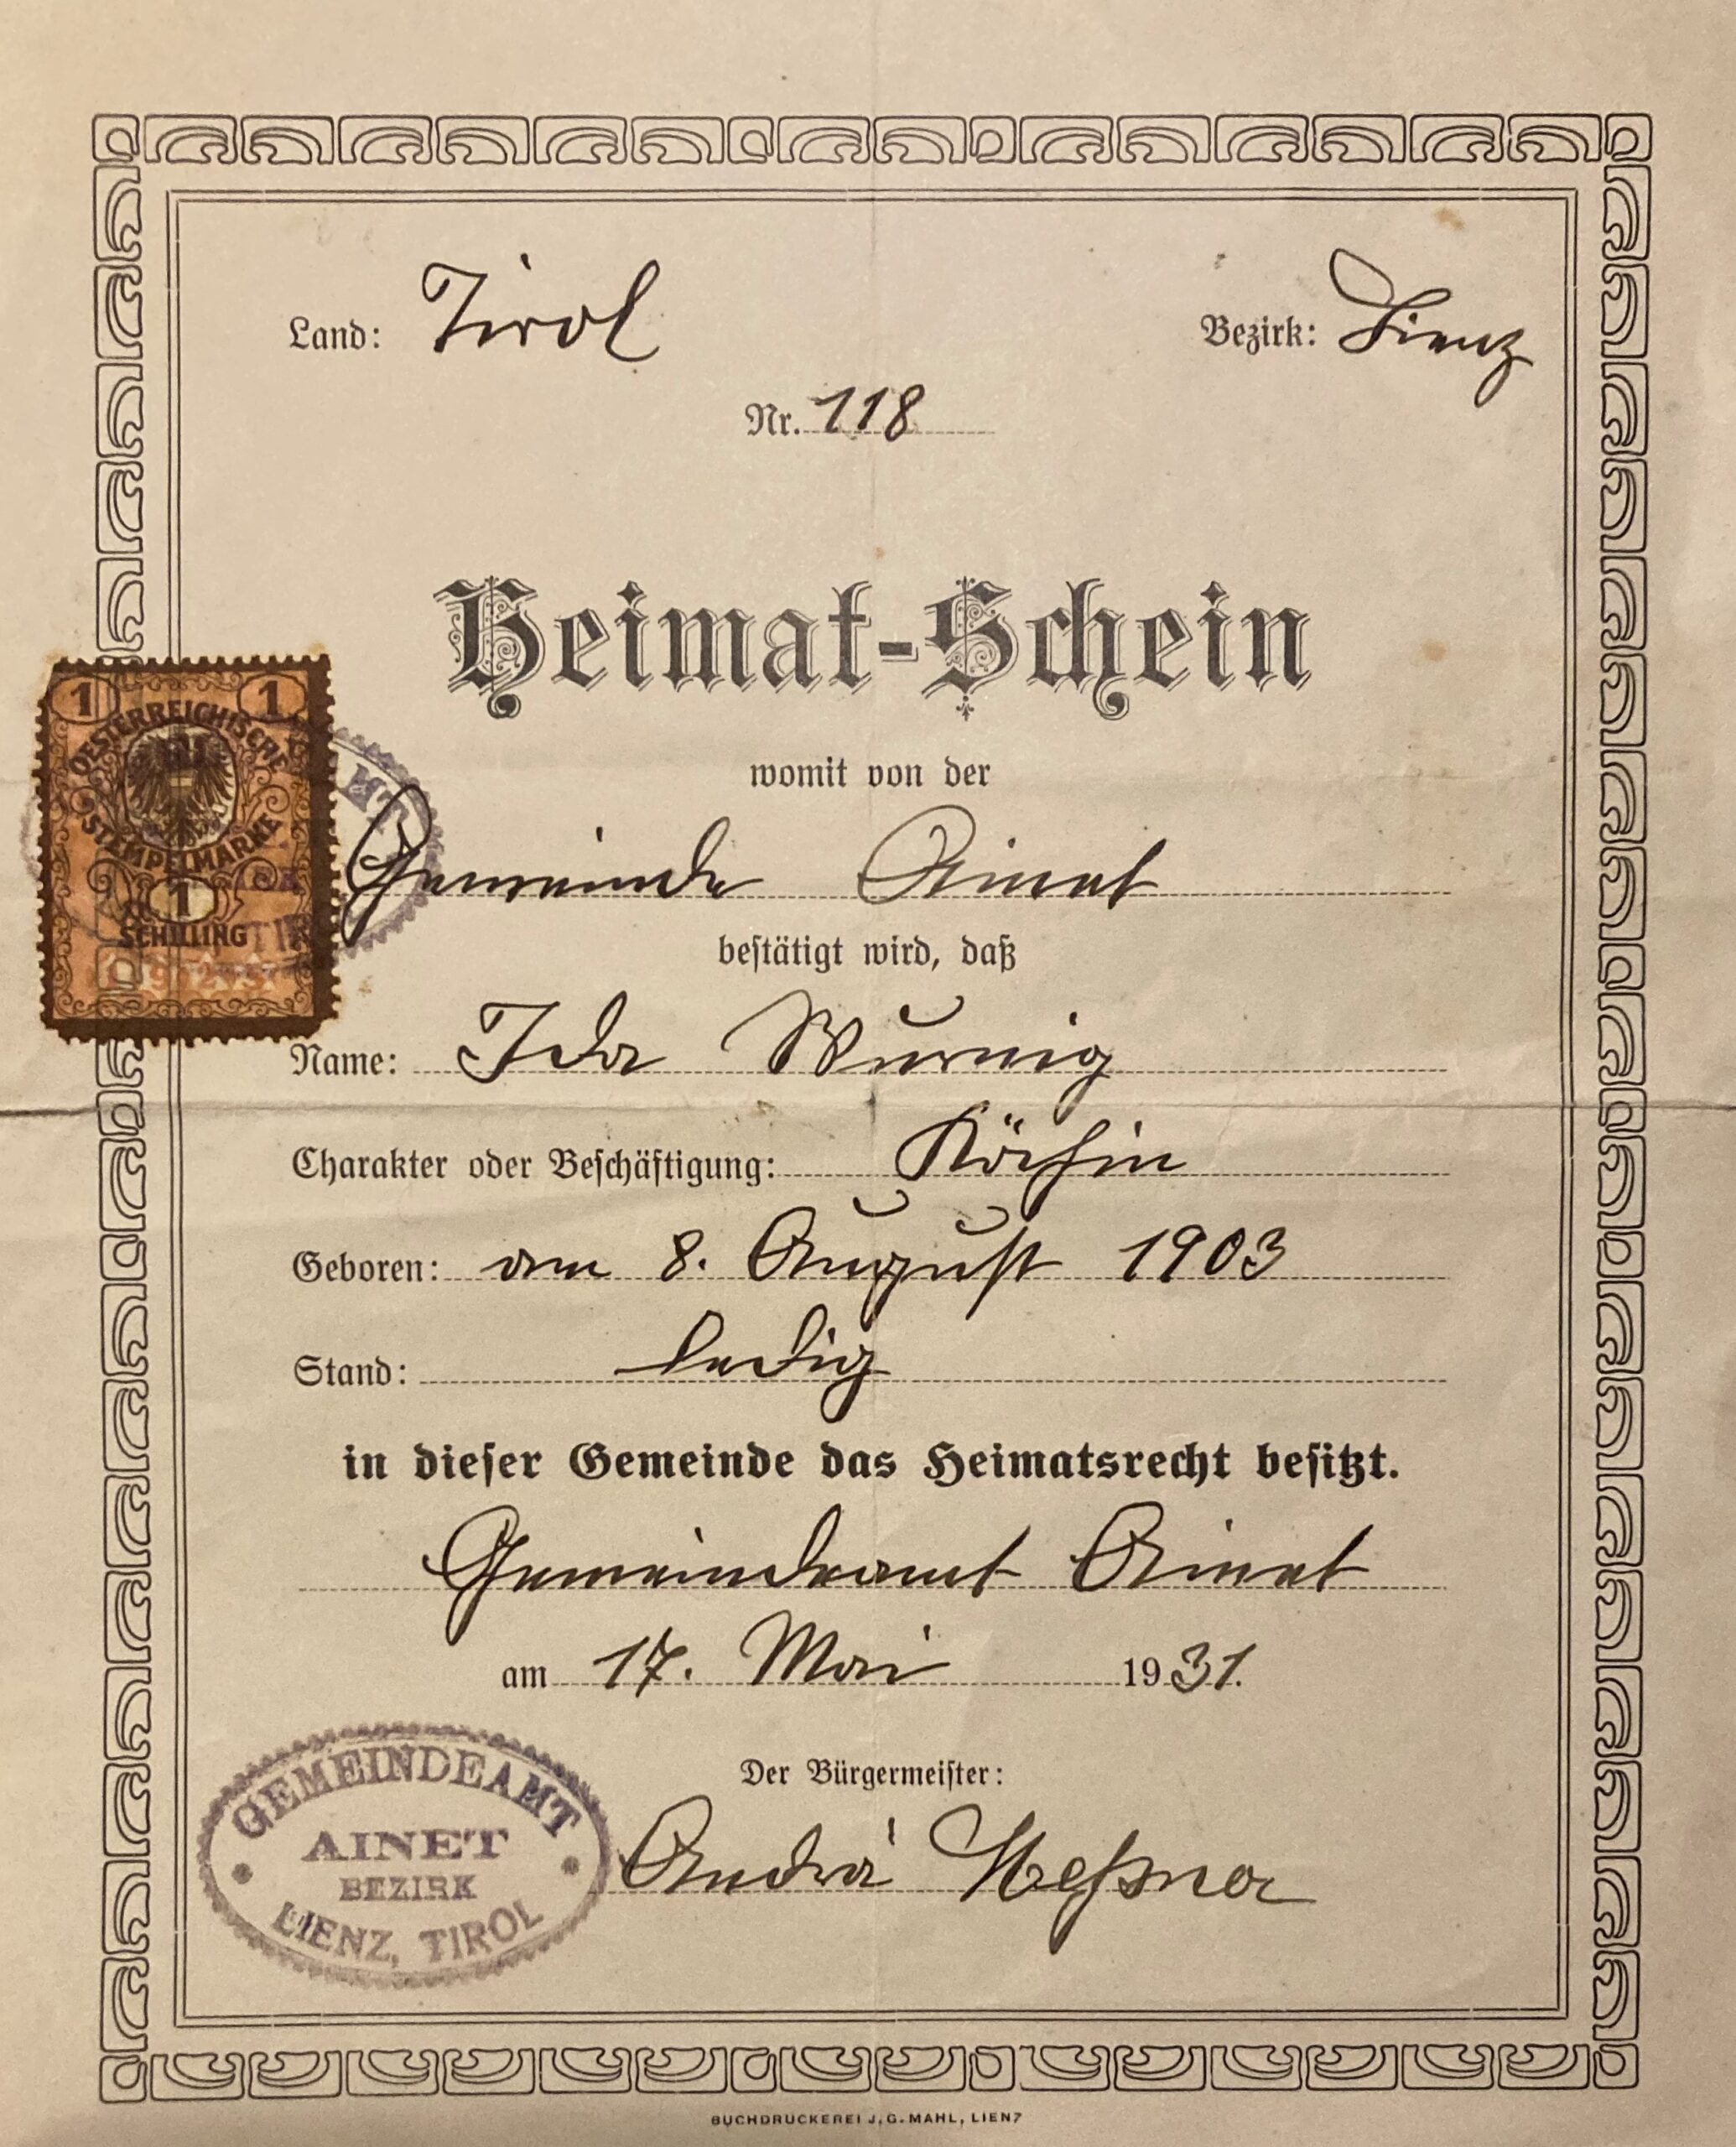 Land: Tirol
Bezirk: Lienz
Nr. 118
Heimat-Schein
1 1
OESTERREICHISCHE
STEMPELMARKE
1
SCHILLING
womit von der
Gemeinde Ainet
bestätigt wird, daß
Name: Ida Wurnig
Charakter oder Beschäftigung: Köchin
Geboren: am 8. August 1903
Stand: ledig
in dieser Gemeinde das Heimatsrecht besitzt.
Gemeindeamt Ainet
am 17. Mai 1931.
Der Bürgermeister:
Andrä Meßner
GEMEINDEAMT
AINET
BEZIRK
LIENZ, TIROL
BUCHDRUCKEREI J. G. MAHL, LIENZ